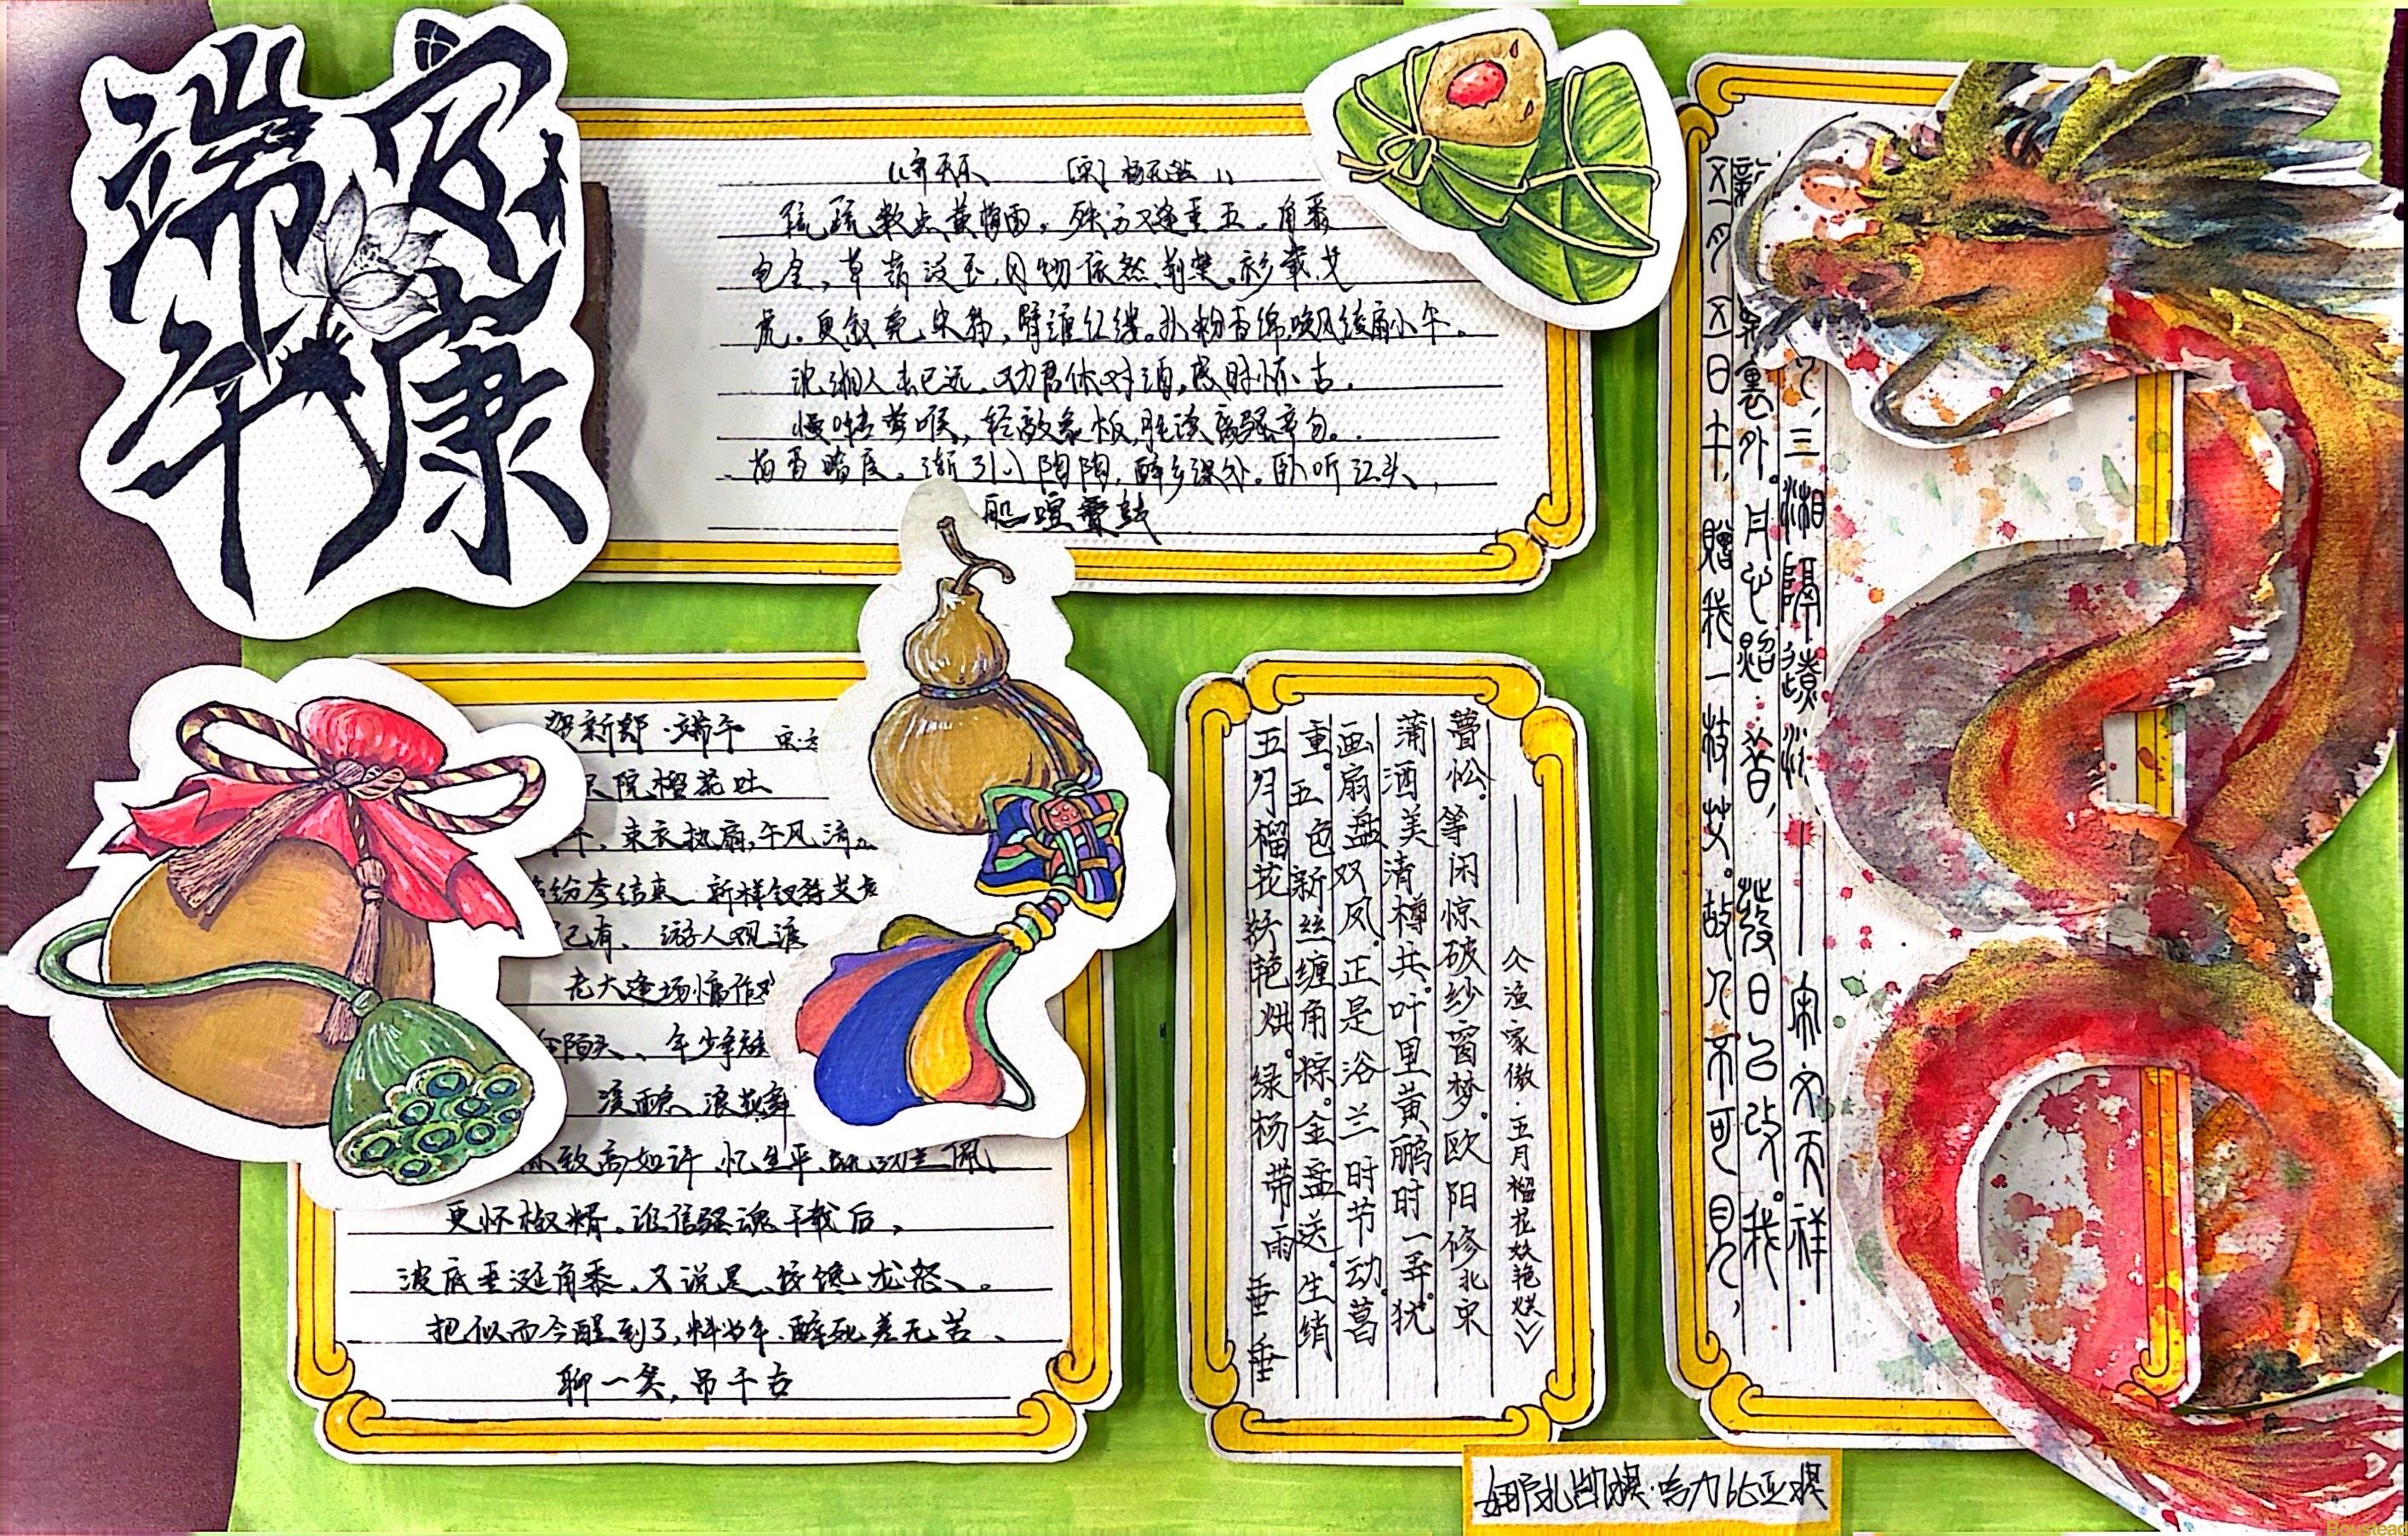 端午安康
《齐天乐 [宋]杨无咎》
疏疏数点黄梅雨。殊方又逢重五。角黍
包金,草蒲泛玉,风物依然荆楚。衫裁艾
虎。更钗凫朱符,臂缠红缕。扑粉香绵,唤风绫扇小午。
沈湘人去已远,劝君休对酒,感时怀古。
慢啭莺喉,轻敲象板,胜读离骚章句。
荷香暗度。渐引入陶陶,醉乡深处。卧听江头,
船喧叠鼓
贺新郎·端午 宋
院榴花吐
束衣执扇,午风清。
纷纷参结束,新样钗符艾虎
已有、游人观渡
老大逢场慵作
陌头、年少争
溪雨急、浪花舞
标致高如许、忆生平、既纫兰佩、
更怀椒糈。谁信骚魂千载后,
波底垂涎角黍,又说是、蛟馋龙怒、。
把似而今醒到了,料当年、醉死差无苦、
聊一笑,吊千古
五月榴花妖艳烘。绿杨带雨垂垂
重。五色新丝缠角粽。金盘送。生绡
画扇盘双凤。正是浴兰时节动。菖
蒲酒美清樽共。叶里黄鹂时一弄。犹
瞢忪。等闲惊破纱窗梦。欧阳修北宋
《渔家傲·五月榴花妖艳烘》
五月五日午,贈我一枝艾。故人不可見,
新 里外。丹心照 昔, 發日已改。我
三湘隔遼海——宋文天祥.